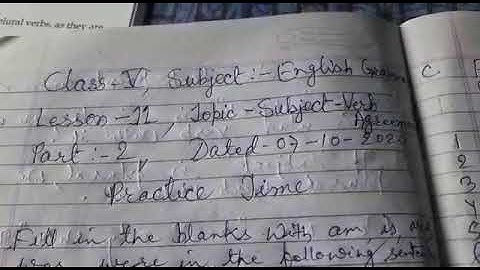 plural verbs, as they are
Class-V, Subject:- English Grammar
Lesson-11, Topic-Subject-Verb
Agreement
Part:-2, Dated-07-10-202
Practice Time
Fill in the blanks with am, is, are
was, were in the following sentences
C
1
2
3
4
5